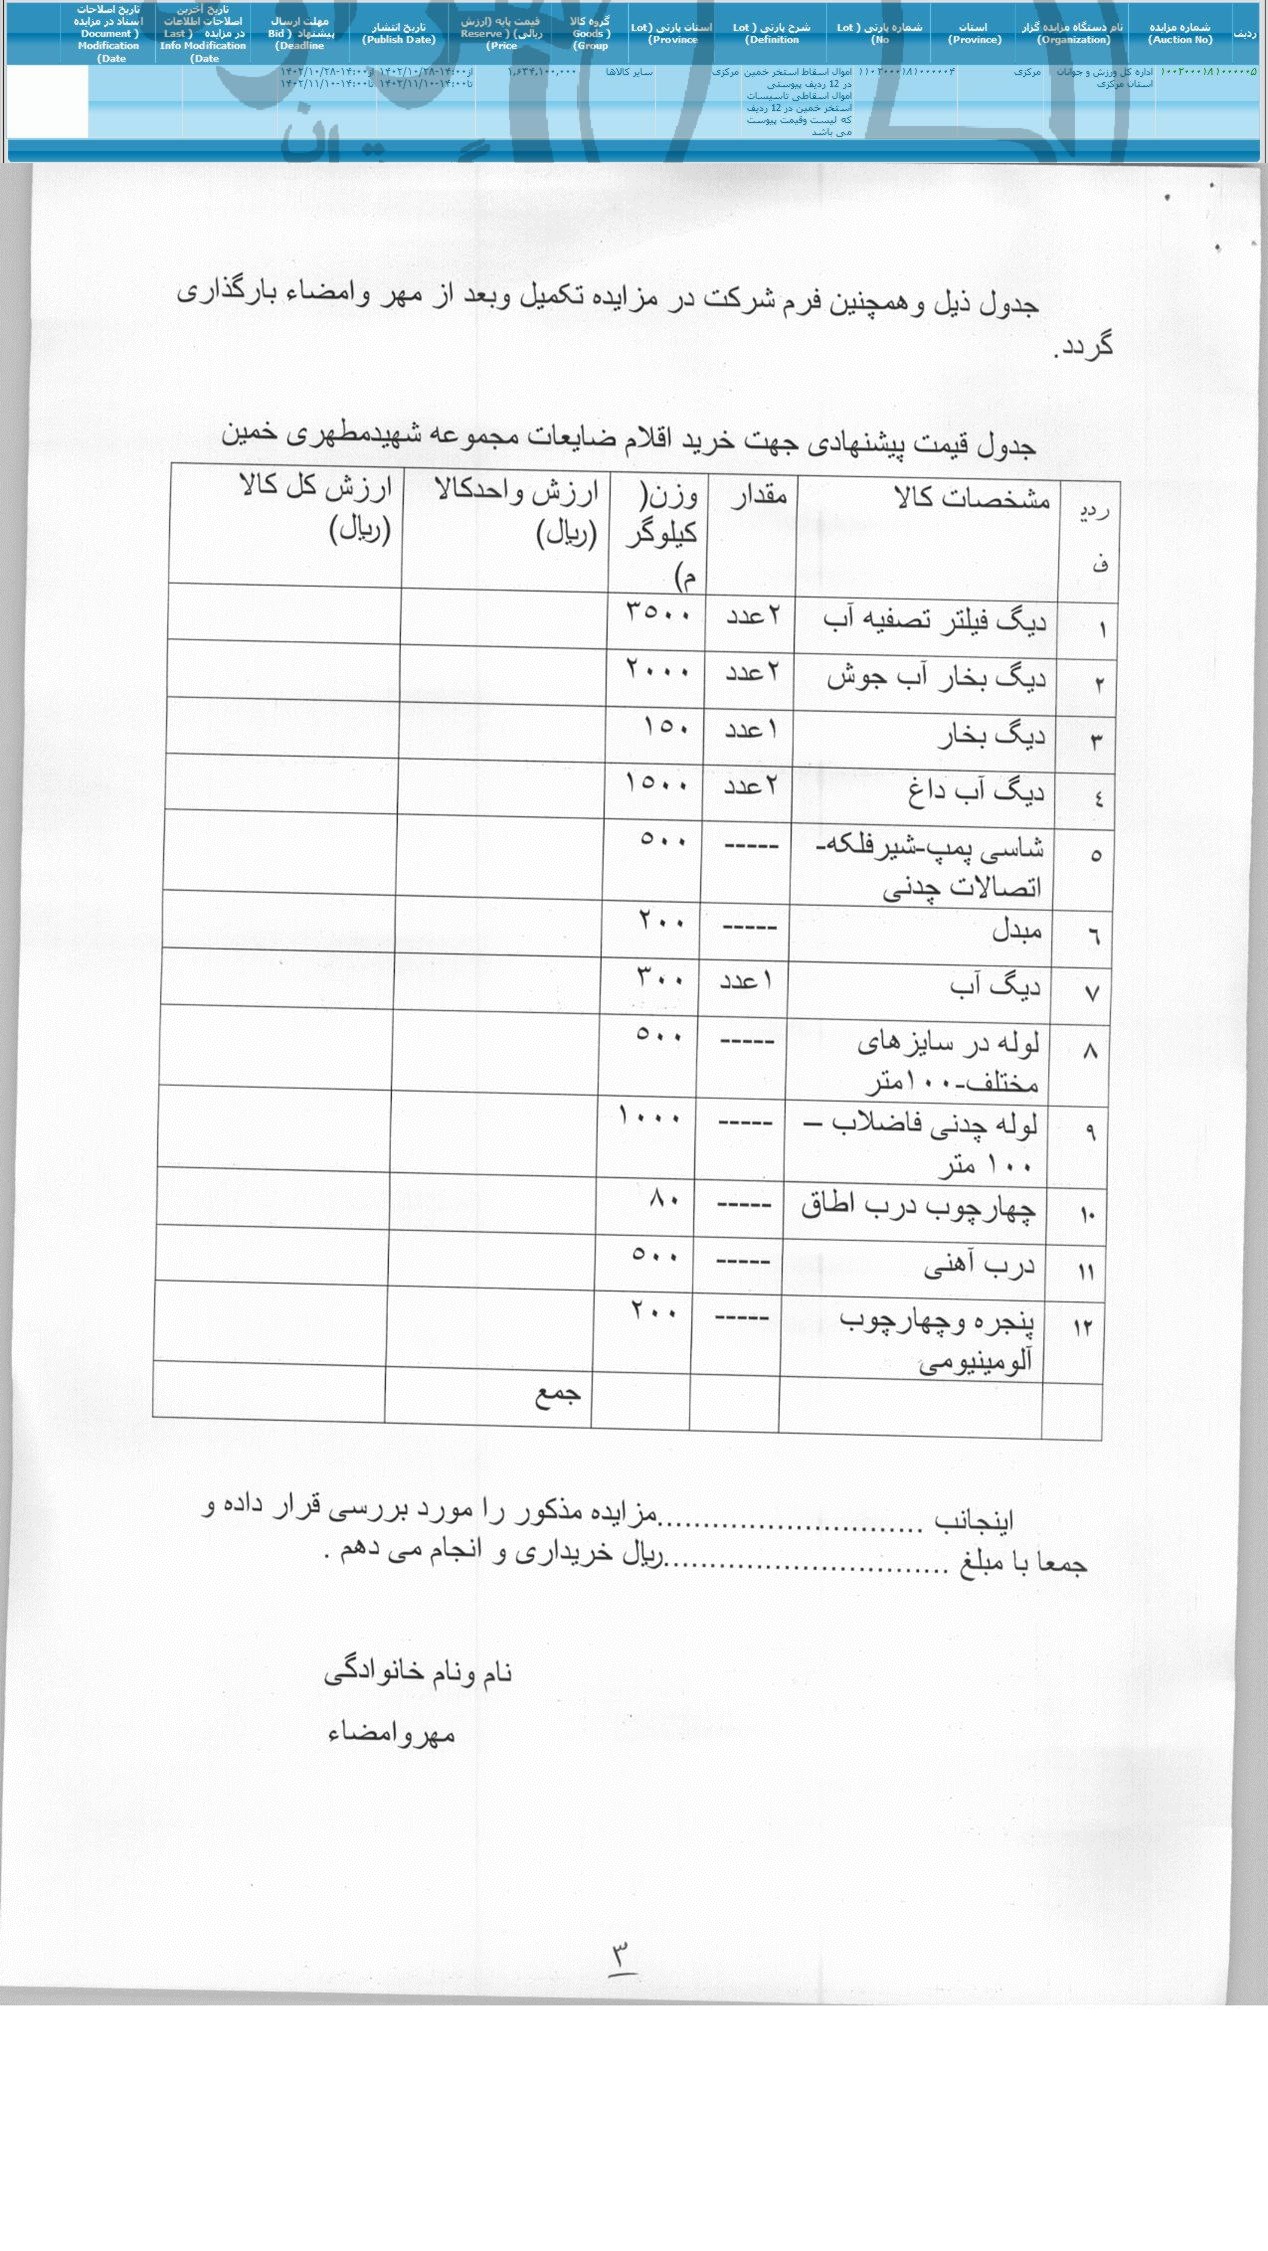 ردیف
شماره مزایده (Auction No)
نام دستگاه مزایده گزار (Organization)
استان (Province)
شماره پارتی ( Lot No)
شرح پارتی ( Lot Definition)
استان پارتی ( Lot Province)
گروه کالا ( Goods Group)
قیمت پایه (ارزش ریالی) ( Reserve Price)
تاریخ انتشار (Publish Date)
مهلت ارسال پیشنهاد ( Bid Deadline)
تاریخ آخرین اصلاحات اطلاعات در مزایده ( Last Info Modification Date)
تاریخ اصلاحات اسناد در مزایده ( Document Modification Date)
اداره کل ورزش و جوانان استان مرکزی
مرکزی
اموال اسقاط استخر خمین در 12 ردیف پیوستی
اموال اسقاطی تاسیسات استخر خمین در 12 ردیف که لیست وقیمت پیوست می باشد
مرکزی
سایر کالاها
۱,۶۳۴,۱۰۰,۰۰۰
از۱۴:۰۰-۱۴۰۲/۱۰/۲۸
تا۱۴:۰۰-۱۴۰۲/۱۱/۱۰
از۱۴:۰۰-۱۴۰۲/۱۰/۲۸
تا۱۴:۰۰-۱۴۰۲/۱۱/۱۰
جدول ذیل وهمچنین فرم شرکت در مزایده تکمیل وبعد از مهر وامضاء بارگذاری
گردد.
جدول قیمت پیشنهادی جهت خرید اقلام ضایعات مجموعه شهیدمطهری خمین
ردیف مشخصات کالا مقدار وزن(کیلوگرم) ارزش واحدکالا (ریال) ارزش کل کالا (ریال)
۱ دیگ فیلتر تصفیه آب ۲عدد ۳۵۰۰
۲ دیگ بخار آب جوش ۲عدد ۲۰۰۰
۳ دیگ بخار ۱عدد ۱۵۰
٤ دیگ آب داغ ۲عدد ۱۵۰۰
۵ شاسی پمپ-شیرفلکه-
اتصالات چدنی ----- ۵۰۰
٦ مبدل ----- ۲۰۰
۷ دیگ آب ۱عدد ۳۰۰
۸ لوله در سایزهای
مختلف-۱۰۰متر ----- ۵۰۰
۹ لوله چدنی فاضلاب –
۱۰۰ متر ----- ۱۰۰۰
۱۰ چهارچوب درب اطاق ----- ۸۰
۱۱ درب آهنی ----- ۵۰۰
۱۲ پنجره وچهارچوب
آلومینیومی ----- ۲۰۰
جمع
اینجانب .............................مزایده مذکور را مورد بررسی قرار داده و
جمعا با مبلغ ...............................ریال خریداری و انجام می دهم .
نام ونام خانوادگی
مهروامضاء
۳